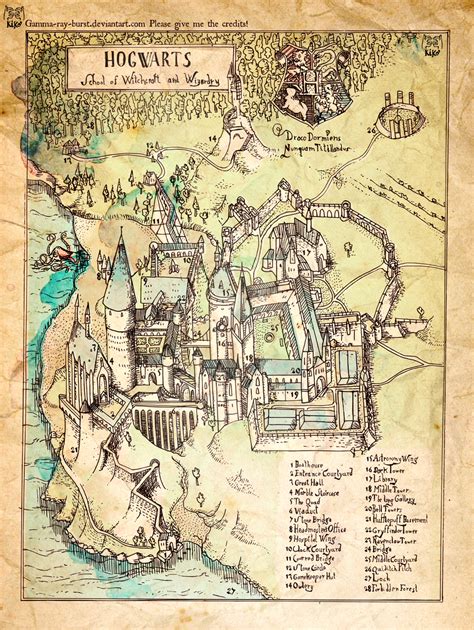 Gamma-ray-burst.deviantart.com Please give me the credits!
KiKo
KiKo
HOGWARTS
School of Witchcraft and Wizardry
Draco Dormiens
Nunquam Titillandus
14
26
21
27
1 Boathouse
2 Entrance Courtyard
3 Great Hall
4 Marble Staircase
5 The Quad
6 Viaduct
7 Stone Bridge
8 Headmasters Office
9 Hospital Wing
10 Clock Courtyard
11 Covered Bridge
12 Stone Circle
13 Gamekeeper Hut
14 Owlery
15 Astronomy Wing
16 Dark Tower
17 Library
18 Middle Tower
19 The Long Gallery
20 Bell Towers
21 Hufflepuff Basement
22 Gryffindor Tower
23 Ravenclaw Tower
24 Bridge
25 Middle Courtyard
26 Quidditch Pitch
27 Loch
28 Forbidden Forest